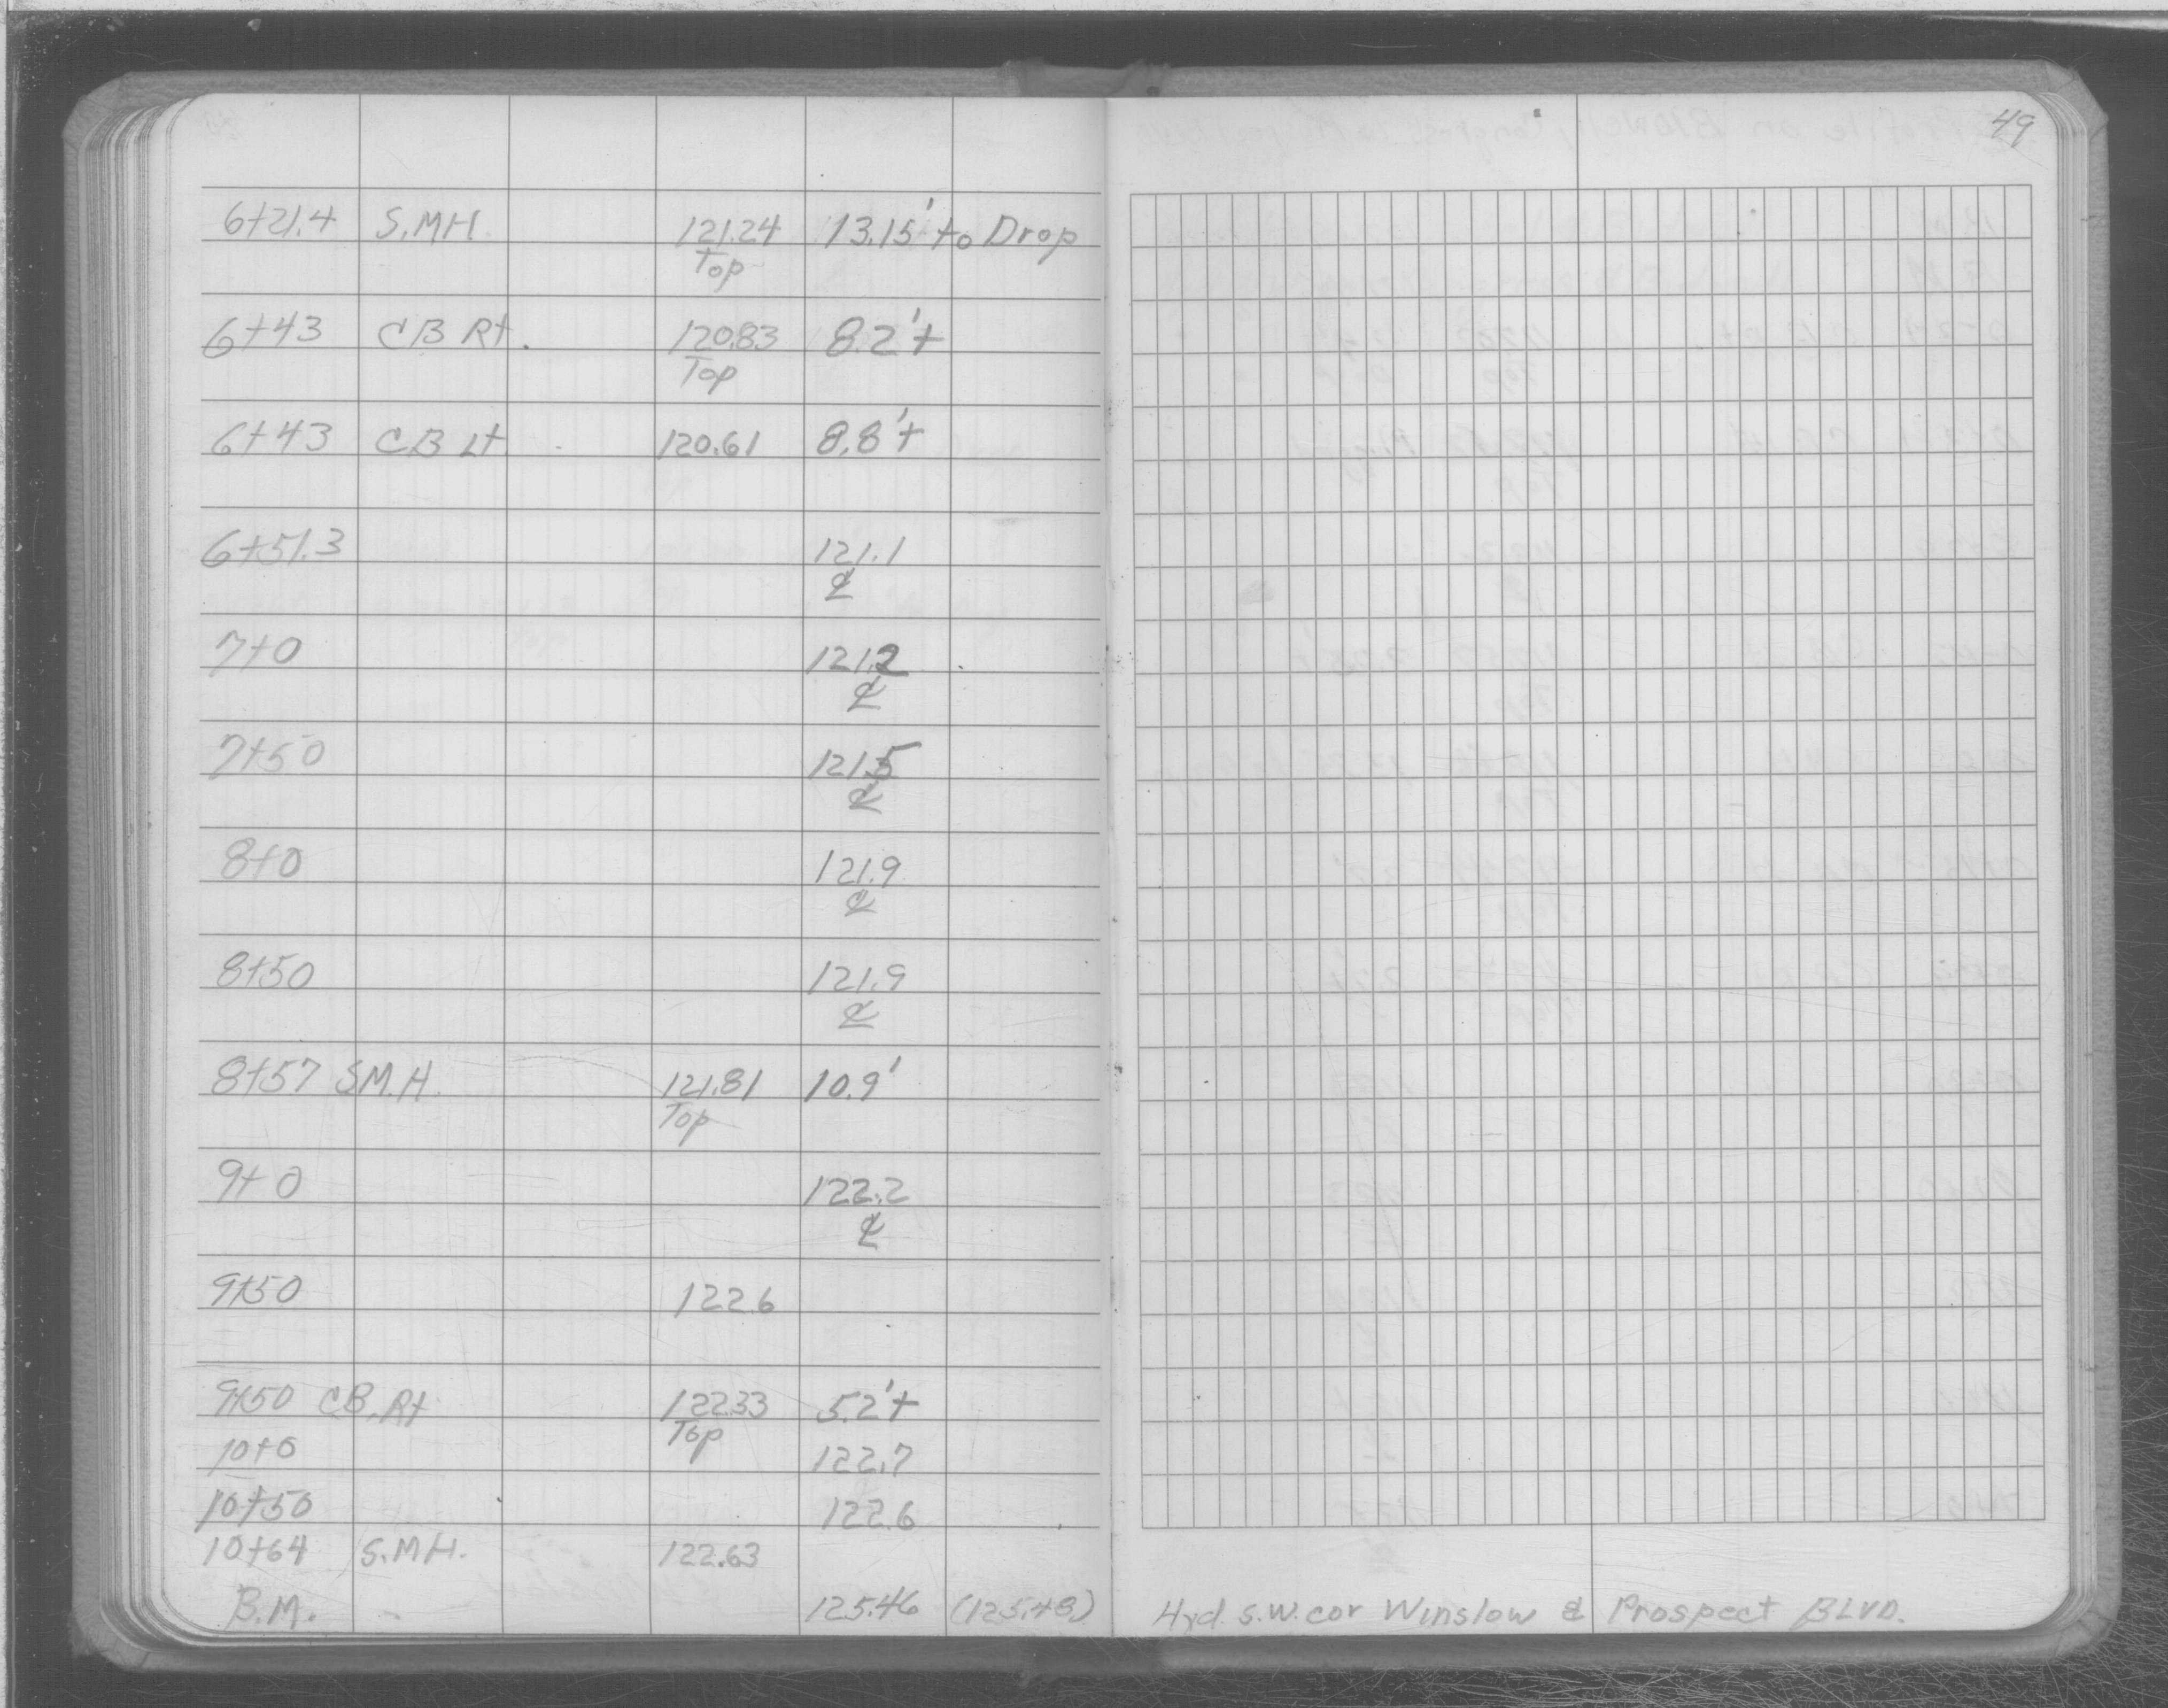 49
6+21.4 S.MH. 121.24 13.15' to Drop
Top
6+43 CB Rt. 120.83 8.2'+
Top
6+43 CB Lt. 120.61 8.8'+
6+51.3 121.1
℄
7+0 121.2
℄
7+50 121.5
℄
8+0 121.9
℄
8+50 121.9
℄
8+57 S.M.H. 121.81 10.9'
Top
9+0 122.2
℄
9+50 122.6
9+50 CB. Rt 122.33 5.2'+
Top
10+0 122.7
10+50 122.6
10+64 S.MH. 122.63
B.M. 125.46 (125.48) Hyd. S.W. cor Winslow & Prospect BLVD.